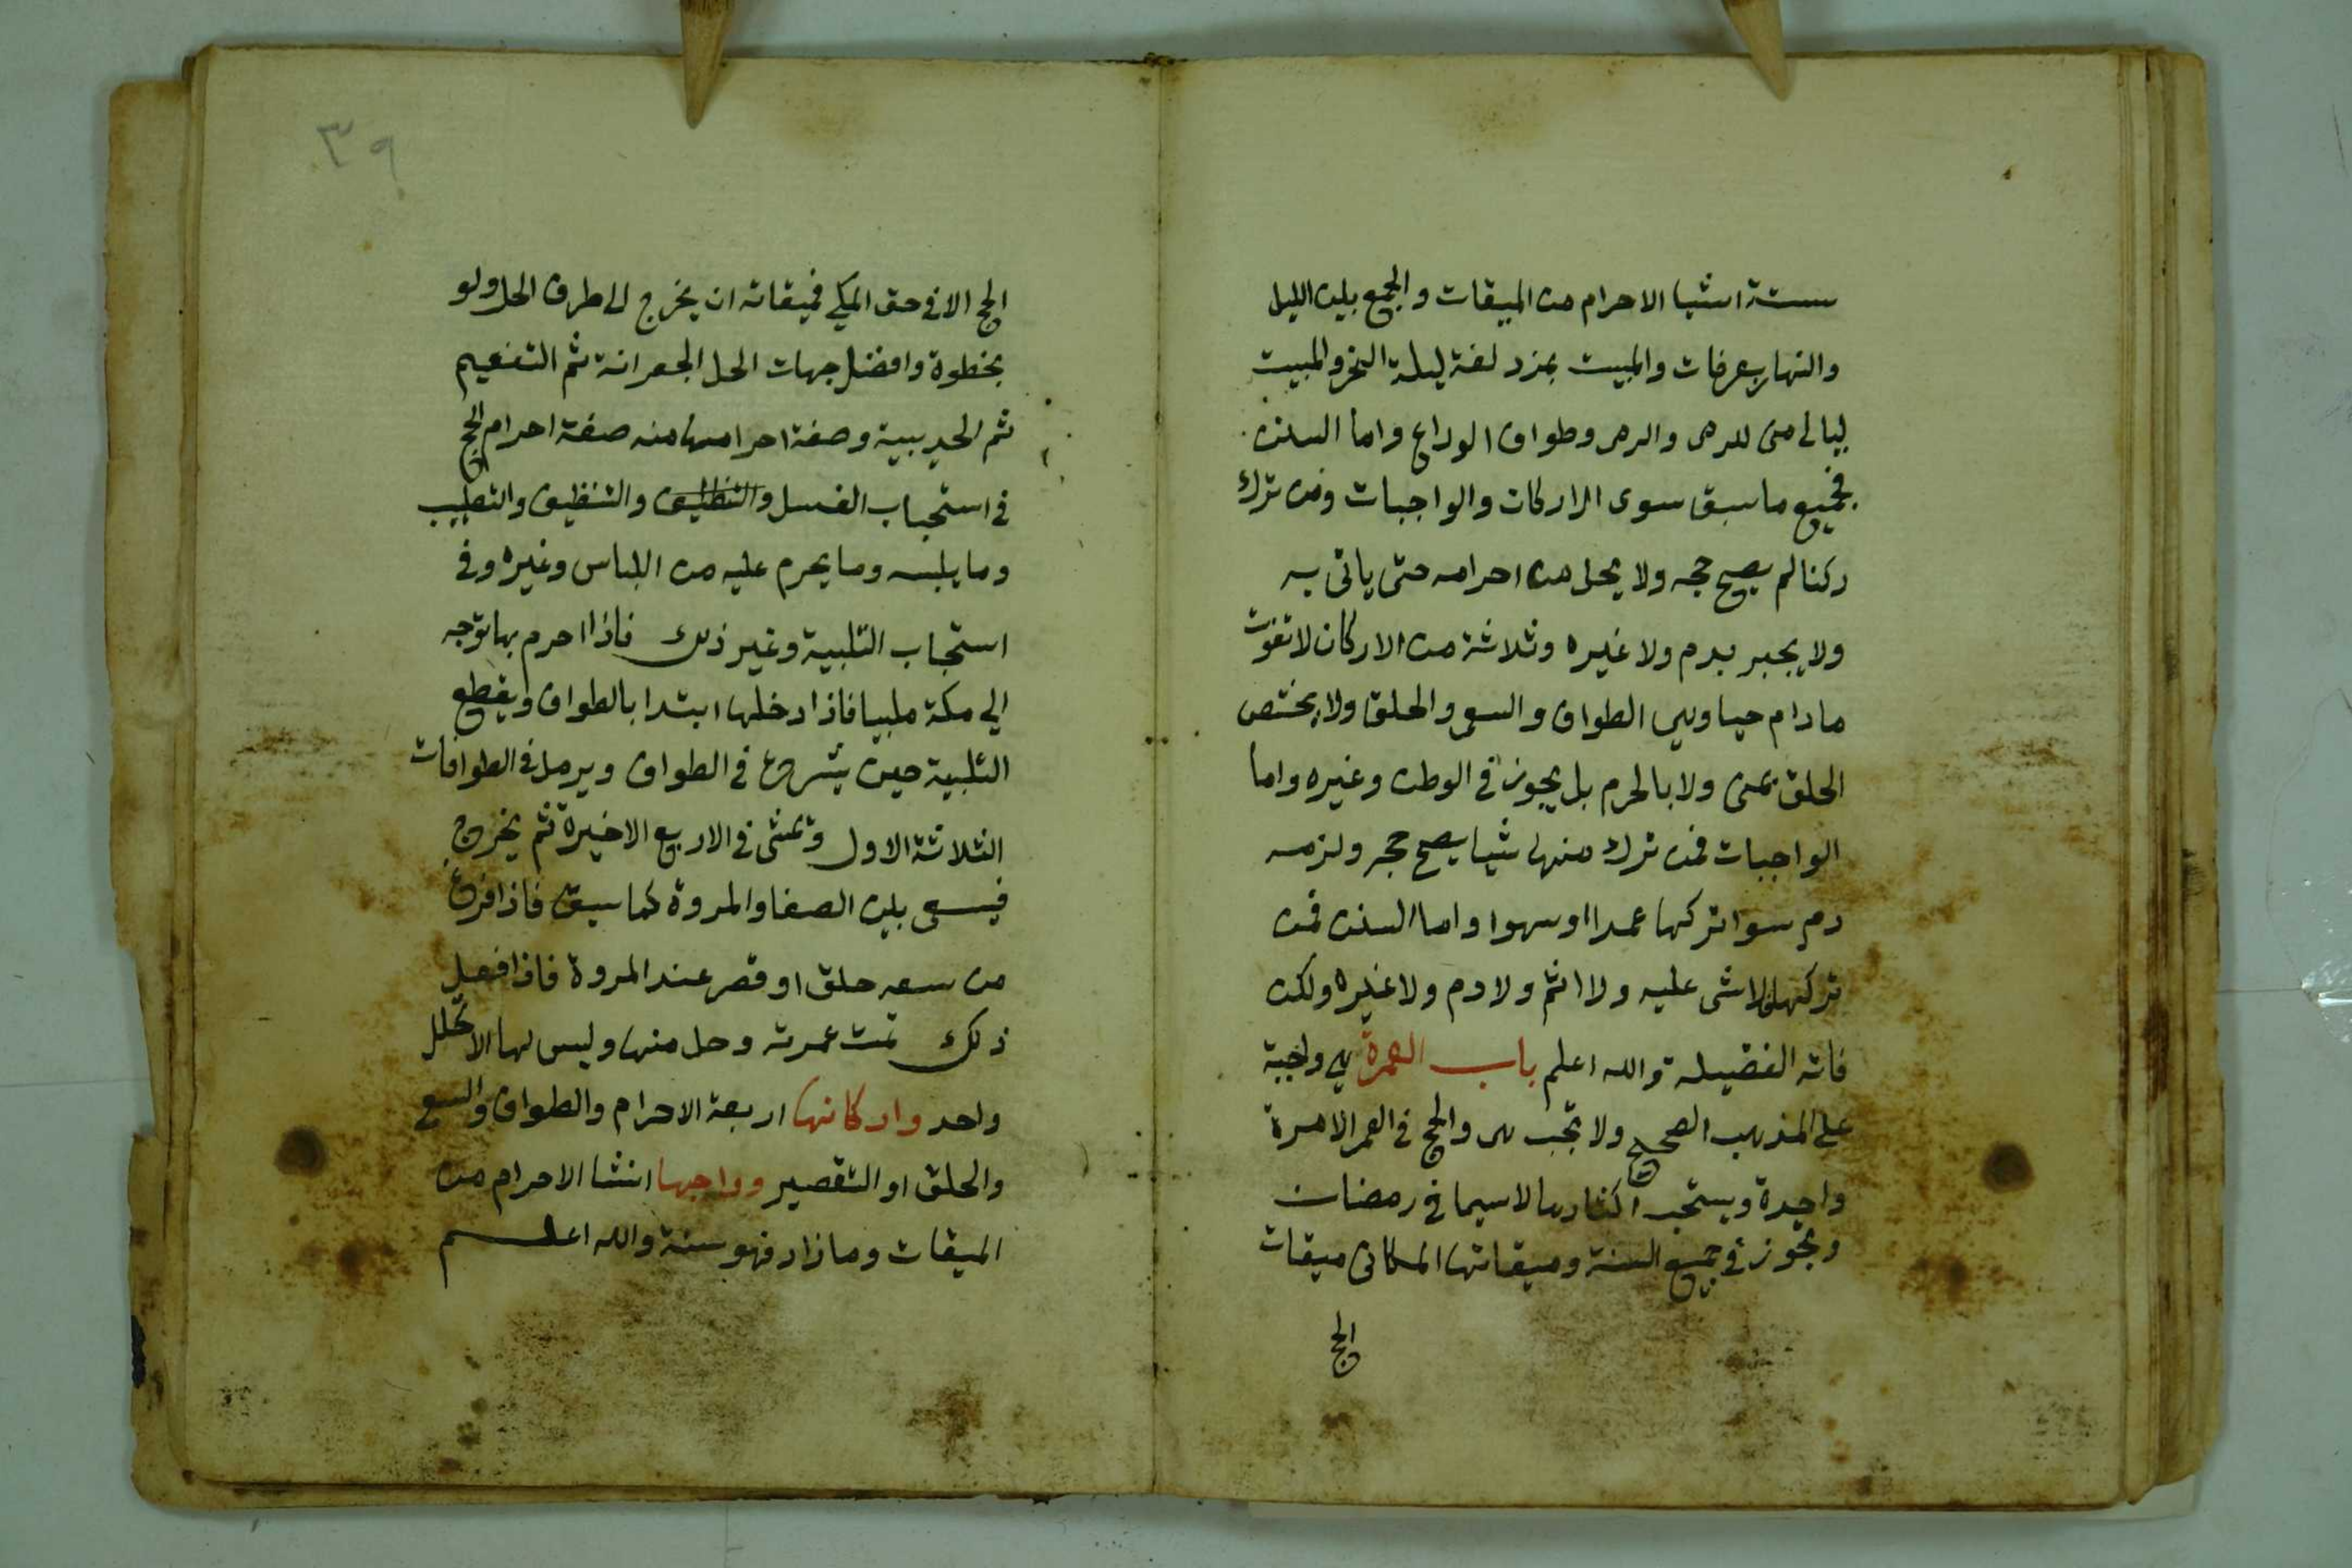 ستة اشيا الاحرام من الميقات والجمع بين الليل
والنهار بعرفات والمبيت بمزدلفة ليلة النحر والمبيت
ليالى منى للرمى والرمى وطواف الوداع واما السنن
فجميع ما سبق سوى الاركان والواجبات ومن ترك
ركنا لم يصح حجه ولا يحل من احرامه حتى ياتى به
ولا يجبر بدم ولا غيره وثلاثة من الاركان لا تفوت
ما دام حيا وهي الطواف والسعى والحلق ولا يختص
الحلق بمنى ولا بالحرم بل يجوز في الوطن وغيره واما
الواجبات فمن ترك منها شيا يصح حجه ولزمه
دم سوا تركها عمدا او سهوا واما السنن فمن
تركها لا شى عليه ولا اثم ولا دم ولا غيره ولكن
فاته الفضيلة والله اعلم باب العمرة هي واجبة
على المذهب الصحيح ولا تجب هى والحج في العمر الا مرة
واحدة ويستحب اكثارها لا سيما في رمضان
وتجوز في جميع السنة وميقاتها المكانى ميقات
الحج
٣٩
الحج الا في حق المكي فميقاته ان يخرج الى طرف الحل ولو
بخطوة وافضل جهات الحل الجعرانة ثم التنعيم
ثم الحديبية وصفة احرامها منه صفة احرام الحج
في استحباب الغسل والتنظيف والتنظيف والتطيب
وما يلبسه وما يحرم عليه من اللباس وغيره وفي
استحباب التلبية وغير ذلك فاذا احرم بها توجه
الي مكة ملبيا فاذا دخلها ابتدا بالطواف ويقطع
التلبية حين يشرع في الطواف ويرمل في الطوافات
الثلاثة الاول ويمشى في الاربع الاخيرة ثم يخرج
فيسعى بين الصفا والمروة كما سبق فاذا فرغ
من سعيه حلق او قصر عند المروة فاذا فعل
ذلك تمت عمرته وحل منها وليس لها الا تحلل
واحد واركانها اربعة الاحرام والطواف والسعى
والحلق او التقصير وواجبها انشا الاحرام من
الميقات وما زاد فهو سنة والله اعلم